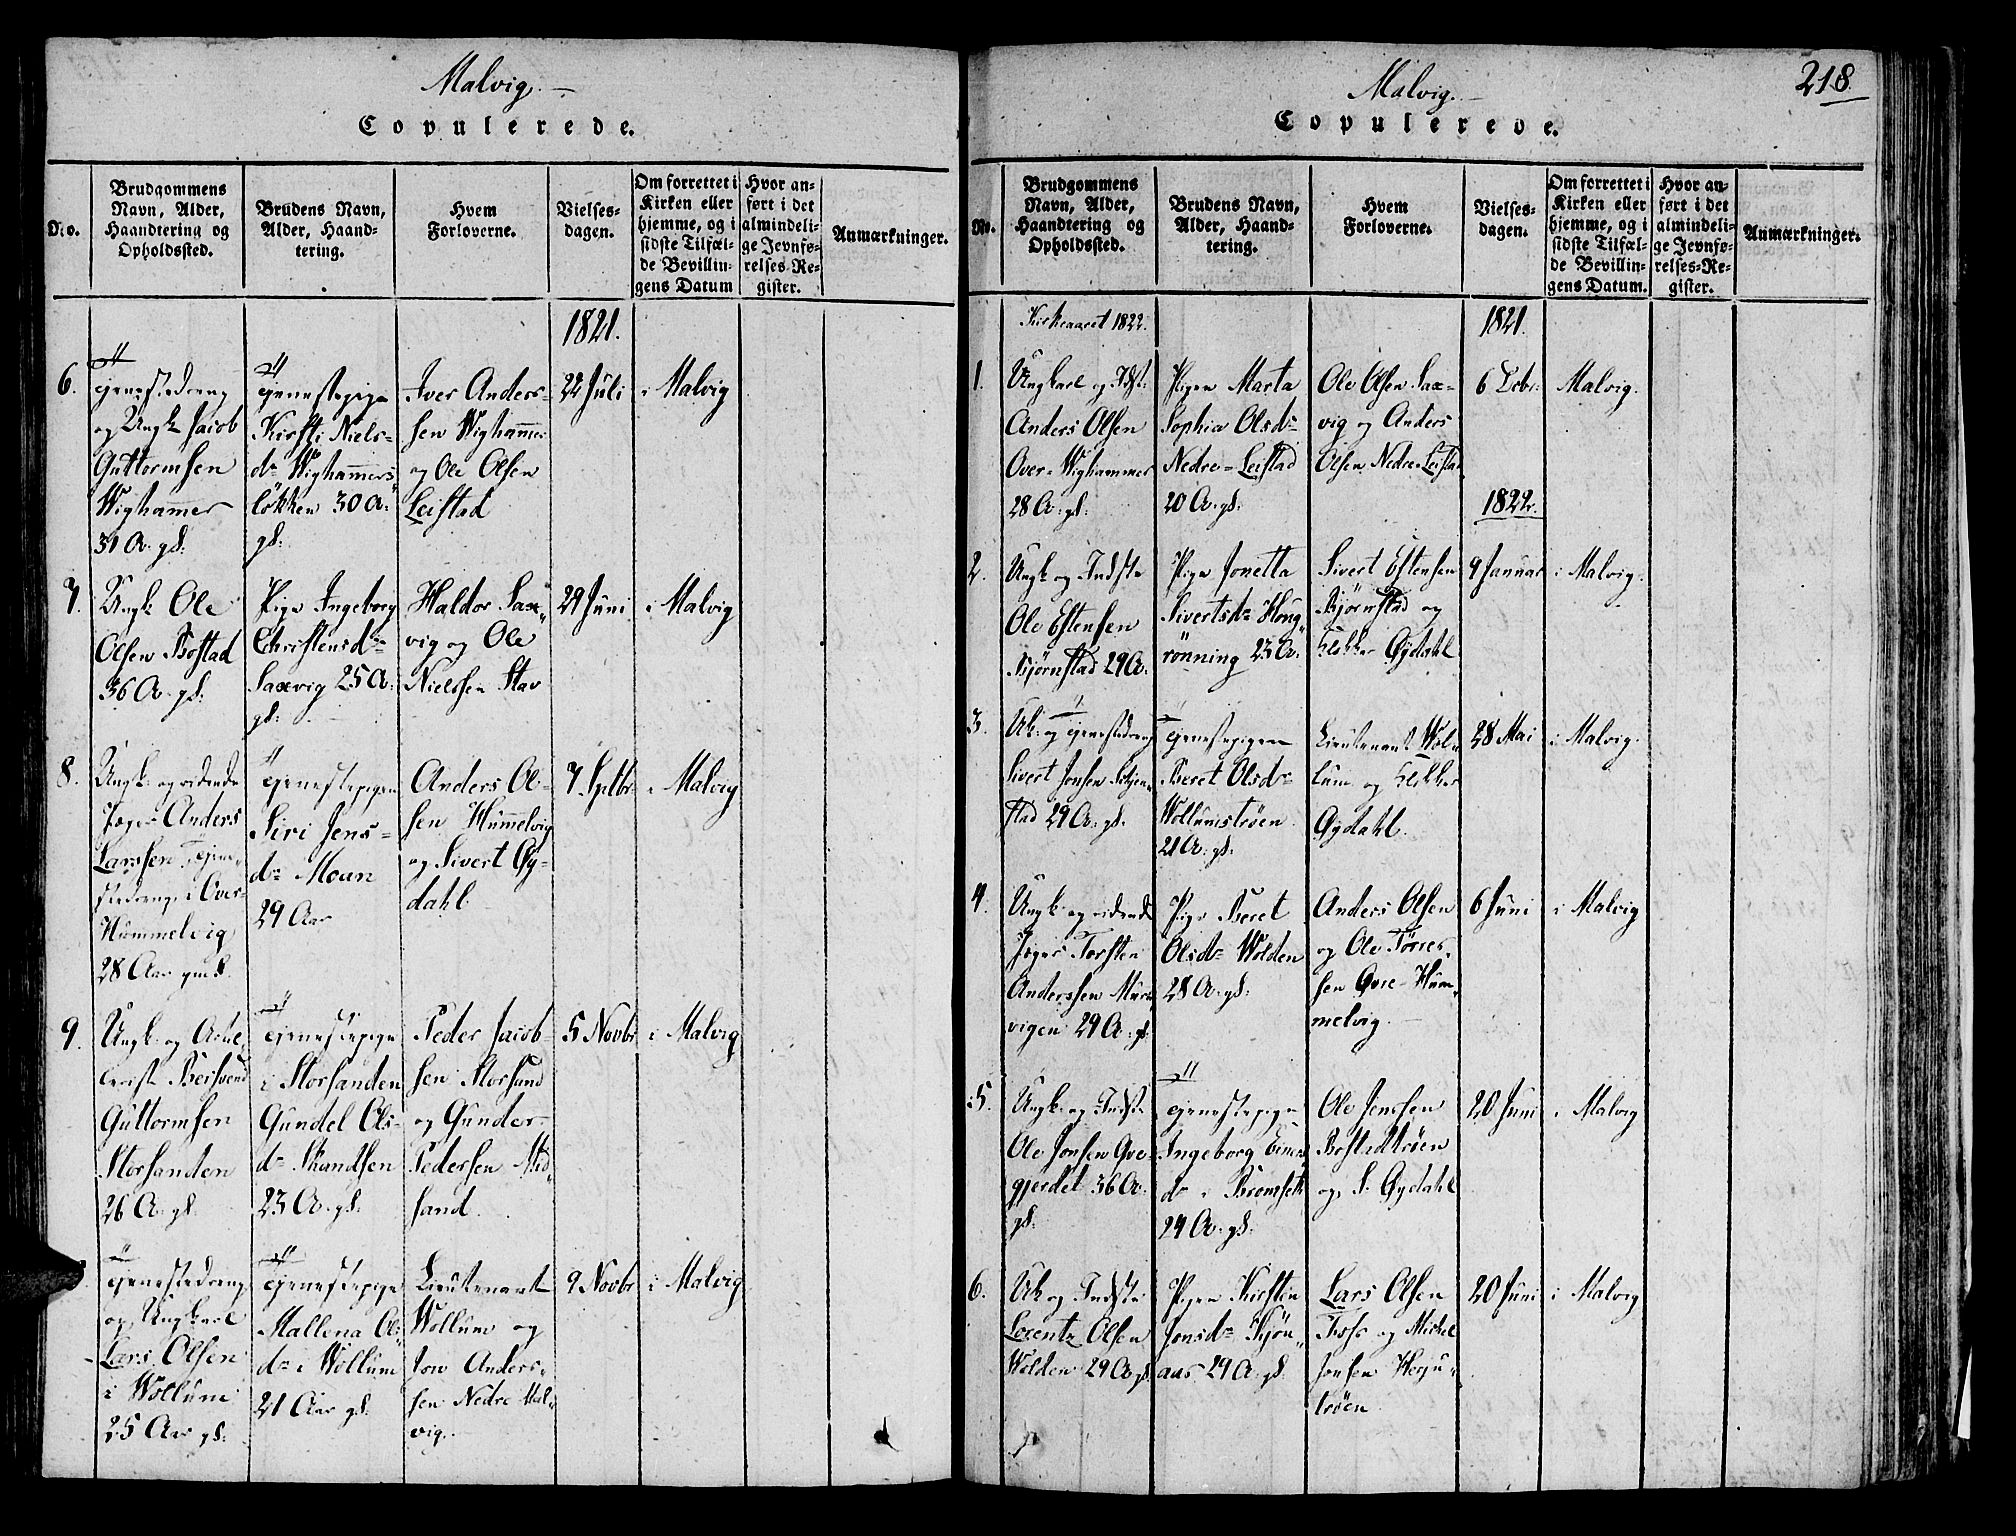 Malvig.
Copulerede.
No.
Brudgommens
Navn, Alder,
Haandtering og
Opholdssted.
Brudens Navn,
Alder, Haand-
tering.
Hvem
Forloverne.
Vielses-
dagen.
Om forrettet i
Kirken eller
hjemme, og i
sidste Tilfæl-
de Bevillin-
gens Datum
Hvor an-
ført i det
almindeli-
ge Jevnfø-
relses-Re-
gister.
Anmærkninger.
1821.
6.
Tjenestedreng
og Ungk. Jacob
Guttormsen
Wighammer
31 A. gl.
Tjenestepige
Kirsti Niels-
dr Wighammers
løkken 30 A.
gl.
Iver Anders-
sen Wighammer
og Ole Olsen
Leistad
22 Juli
i Malvig
7.
Ungk. Ole
Olsen Bostad
36 A. gl.
Pige Ingeborg
Christensdr
Saxvig 25 A.
gl.
Haldor Sax-
vig og Ole
Nielssen Stav
29 Juni
i Malvig
8.
Ungk. og ridende
Jæger Anders
Larssen Tjene-
stedreng i Over-
Hummelvig
28 Aar gml.
Tjenestepigen
Siri Jens-
dr Moan
29 Aar
Anders Ol-
sen Hummelvig
og Sivert Øy-
dahl
7 Septbr
i Malvig
9.
Ungk. og
Guttormsen
Storsanden
26 A. gl.
Tjenestepige
i Storsanden
Gundel Ols-
dr Skandsen
23 A. gl.
Peder Jacob-
sen Storsand
og Gunder
Pedersen Mid-
sand.
5 Novbr
i Malvig
Tjenestedreng
og Ungkarl
Lars Olsen
i Wollum
25 Aar gl.
Tjenestepige
Mallena Ols
dr i Wollum
21 Aar gl.
Lieutenant
Wollum og
Jon Anders-
sen Nedre Mal-
vig.
9 Novbr
i Malvig
218.
Malvig.
Copulerede.
No.
Brudgommens
Navn, Alder,
Haandtering og
Opholdssted.
Brudens Navn,
Alder, Haand-
tering.
Hvem
Forloverne.
Vielses-
dagen.
Om forrettet i
Kirken eller
hjemme, og i
sidste Tilfæl-
de Bevillin-
gens Datum.
Hvor an-
ført i det
almindeli-
ge Jevnfø-
relses-Re-
gister.
Anmærkninger.
Kirkeaaret 1822.
1821.
1.
Ungkarl og Indst.
Anders Olsen
Over-Wighammer
28 A. gl.
Pigen Marta
Sophia Olsdr
Nedre-Leistad
20 A. gl.
Ole Olsen Sax-
vig og Anders
Olsen Nedre-Leistad
6 Debr.
Malvig.
1822.
2.
Ungk. og Indste
Ole Estensen
Bjørnstad 29 A.
Pige Jonetta
Sivertsdr Houg-
rønning 23 A.
Sivert Estensen
Bjørnstad og
Klokker Øydahl
9 Januar
i Malvig.
3.
Uk. og Tjenestedreng
Sivert Jonsen
stad 29 A. gl.
Tjenestepigen
Beret Olsdr
Wollumstrøen
21 A. gl.
Lieutenant Wol-
lum og Klokker
Øydahl.
28 Mai
i Malvig.
4.
Ungk. og ridende
Jæger Torsten
Anderssen Mur-
vigen 29 A. gl.
Pige Beret
Olsdr Wolden
28 A. gl.
Anders Olsen
og Ole Tørres-
sen Øvre-Hum-
melvig.
6 Juni
i Malvig
5.
Ungk. og Indste
Ole Jonsen Øve-
gjerdet 36 A.
gl.
Tjenestepige
Ingeborg
dr i Bromseth
24 A. gl.
Ole Jenssen
Bostadtrøen
og S. Øydahl
20 Juni
i Malvig
6.
Uk og Indste
Lorentz Olsen
Wolden 29 A. gl
Pigen Kirsten
Jonsdr Kjøn-
aas 29 A. gl.
Lars Olsen
og Mickel
Jonsen Herju-
trøen
20 Juni
i Malvig